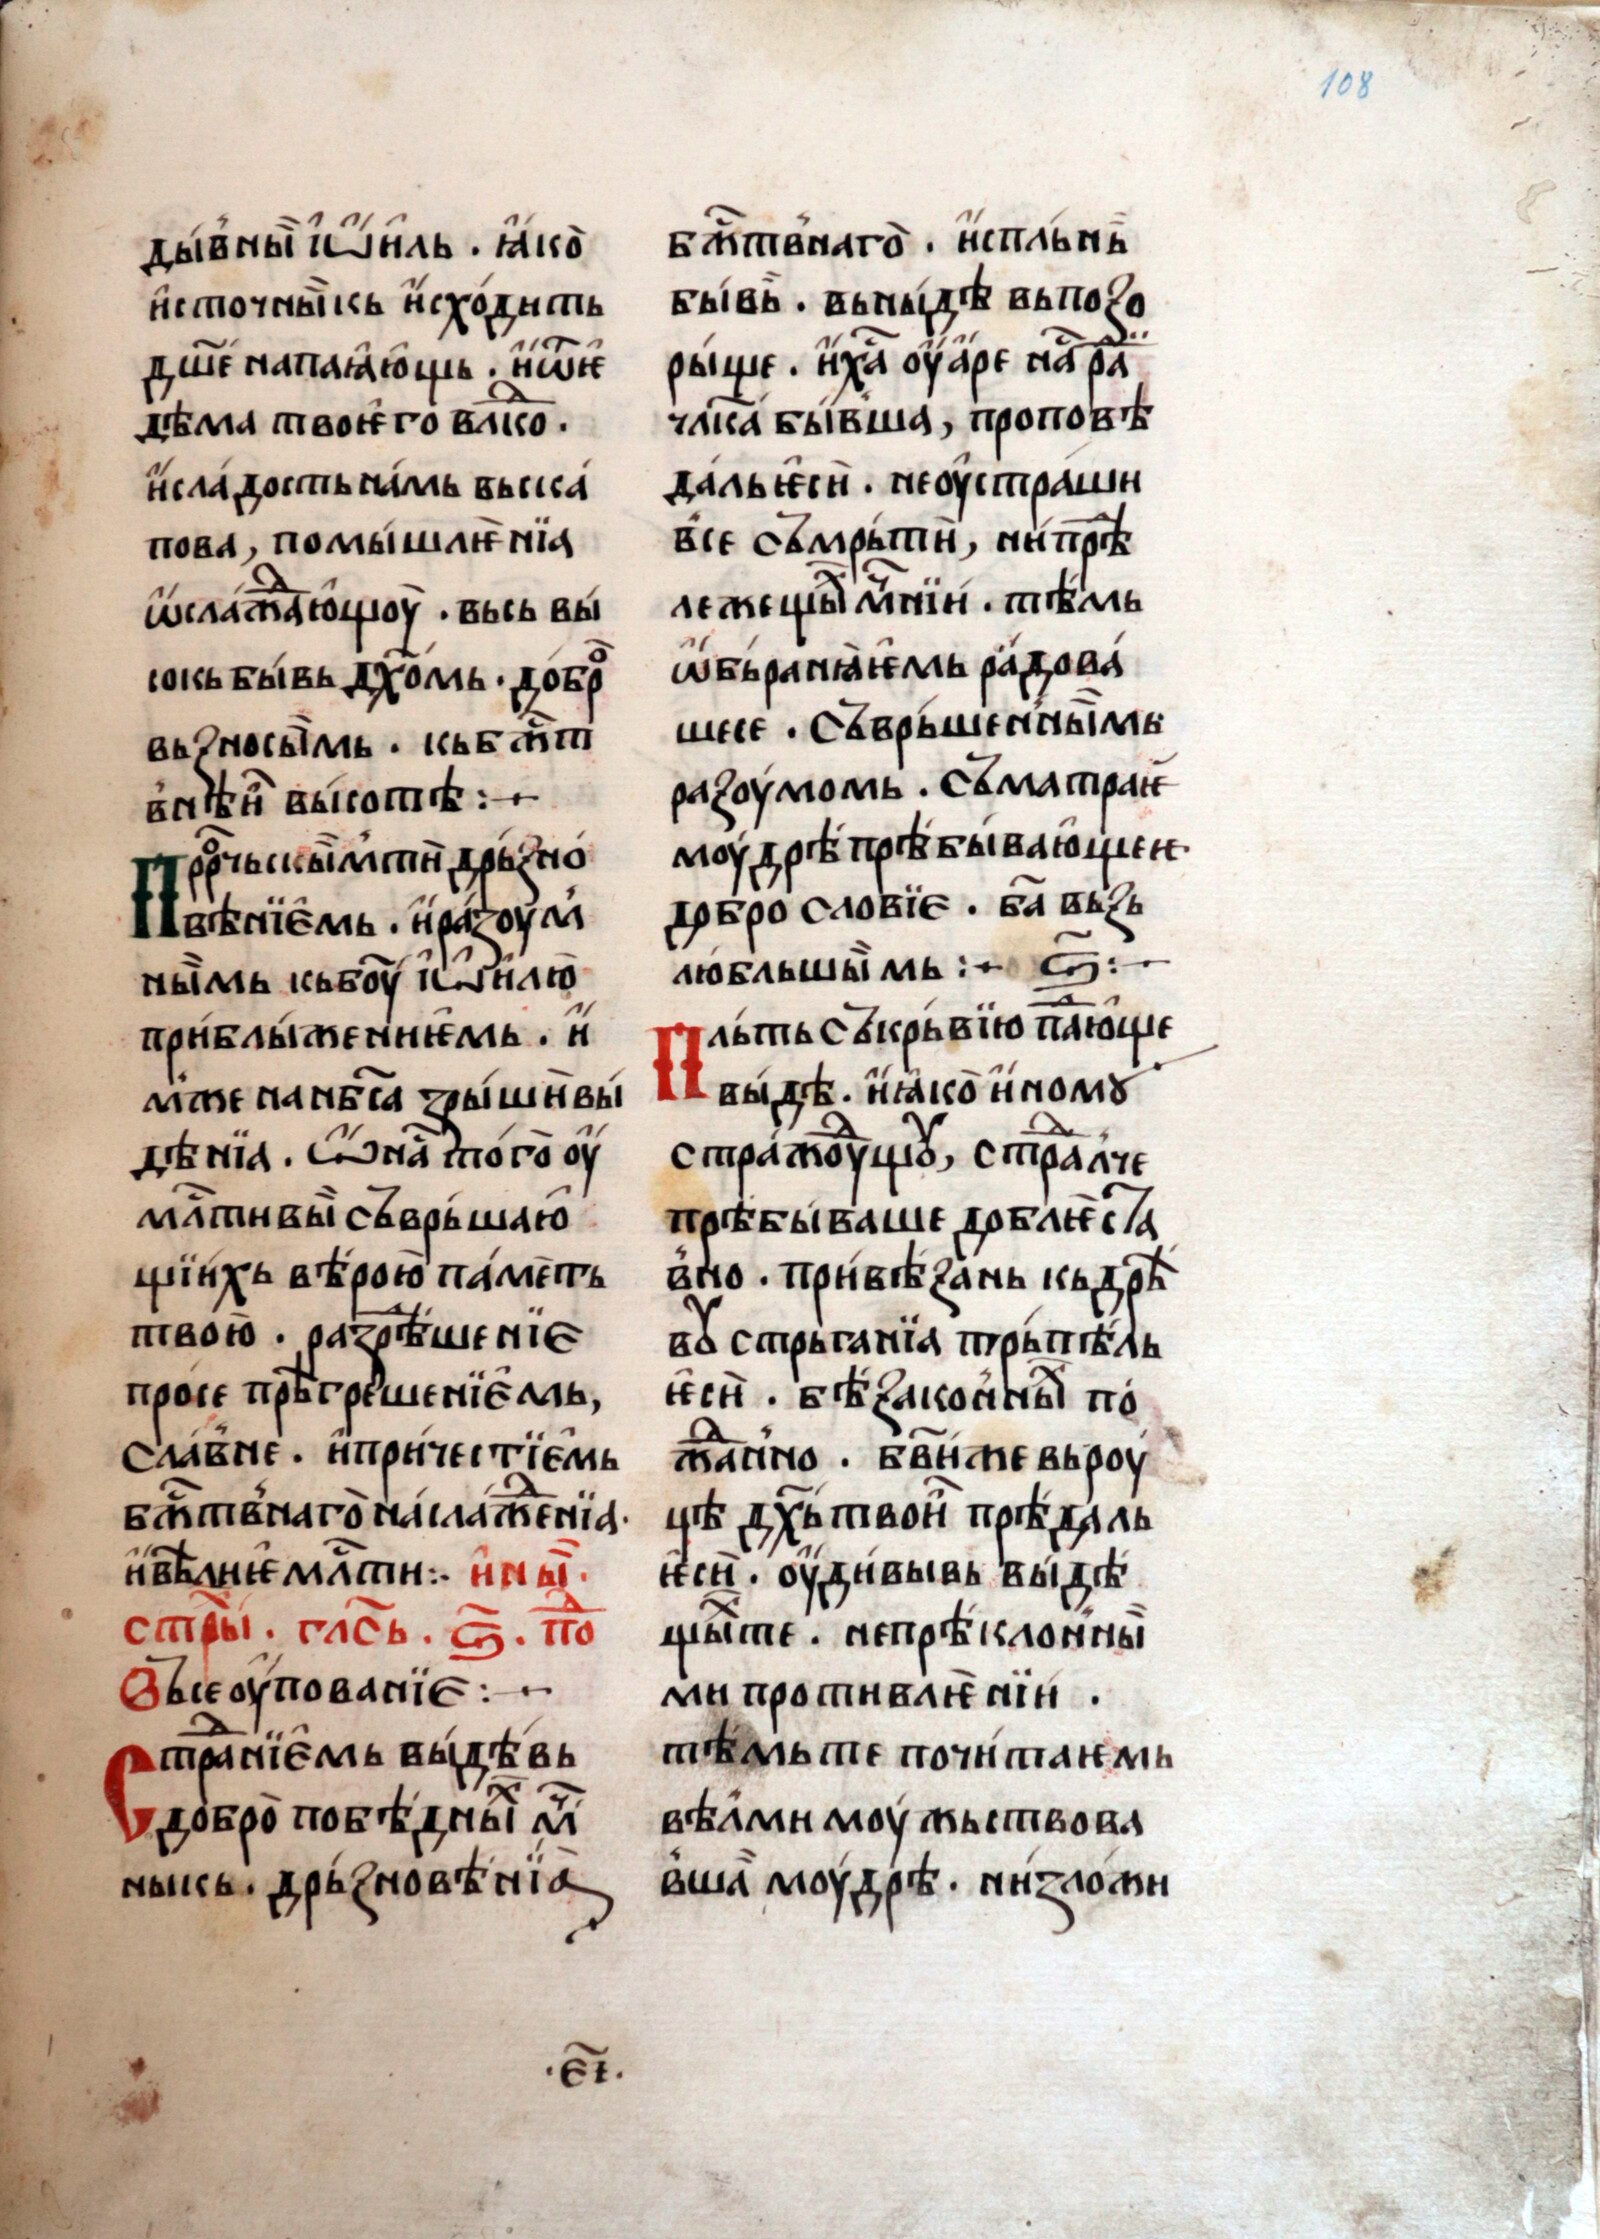 108
ды́вны̏ і҆ѡ҆и́ль . ꙗ҆́ко̀
и҆сточны̏кь и҆схо́дить
дш҃е напаꙗ́ю҆щь . и҆ѿѥ
дѣма твоѥго влⷣко .
и҆сла́дость на́мь въска́
пова , помы́шлѥнїа
ѡ҆сла́жⷣаю҆щоу̀ . вьсь вы́
сокь бы́вь дх҃омь . до́брⷪ
вьзносы̏мь . кь бж҃т
внѣ́и҆ вы́сотѣ :-
Прⷪрчьскы̏мⷭтѝ дрь́зно́
вѣнїе҆мь . и҆ра́зоум
ны̏мь кь бо҃у і҆ѡ҆и́лю̀
при́бли́женнѥмь . и҆
мже на нб҃са зры́шѝ вы́
дѣнїа . ѿ на҃ то́го̀ оу҆
млт҃ивы̏ съврь́шаю̀
щїи́хь вѣ́рою̀ па́меть
твою̀ . разрѣ́шенїе
про́се прѣгрешенїе҆мь ,
сла́вне . и҆при́чест їе҆мь
бж҃твнаго̀ на́слажⷣенїа .
и҆вѣлиѥ млт҃и :· и҆ны̏ .
стрⷯы́ . гла҃сь . ѕ҃ . поⷣ
Въсе оу҆пованїе :-
Страⷣнїе҆мь вы́дѣ́вь
до́бро̀ побѣ́дны̏ⷯ мⷱ҃
никь . дрь́зновѣ́нїа̀
бж҃твнаго̀ . и҆спль́нь̀
бы́вь̀ . вьны́дѣ вьпозо
ры́ще . и҆ха҃ оу҆а́ре на҃ раⷣ
члк҃а бы́вша , проповѣ
да́ль ѥ҆сѝ . не оу҆стра́ши
все съмрь́тѝ , ни прѣⷣ
лежещы̏ⷯ мⷱ҃нїи́ . тѣ́мь
ѡ҆бь́ранꙗѥ҆мь ра́дова́
шесе . съврь́шенны̏мь
разоумомь . съматраѥ
моу́дрѣ́ прѣ́бы́ваю҆щеѥ
добро словїе . ба҃ вьзь
лю́бльшы̏мь :- ѕ҃ :-
Пль́ть съкрь́вїю паⷣаю҆ще
вы́дѣ . и҆ꙗко̀ и҆номꙋ
стра́жоуⷣщꙋ , страⷣлче
прѣ́бы́ваше доблѥ ста҃
вно . при́вѣ́зань кь дрѣ́
вꙋ стрьганїа трь́пѣ́ль
ѥ҆сѝ . бѣ́законны̏ⷯ по́
жⷣанно . бв҃и́же вьроу
цѣ дх҃ь твои҆ прѣ́даль
ѥ҆сѝ . оу҆ди́вывь вы́дѣ
щы̏ⷯте . непрѣ́клонны̏
ми противлѥнїи́ .
тѣ́мьте почи́таѥмь
вѣлми моу́жьствова
вша̀ моу́дрѣ . ни́зложи
·є҃і·